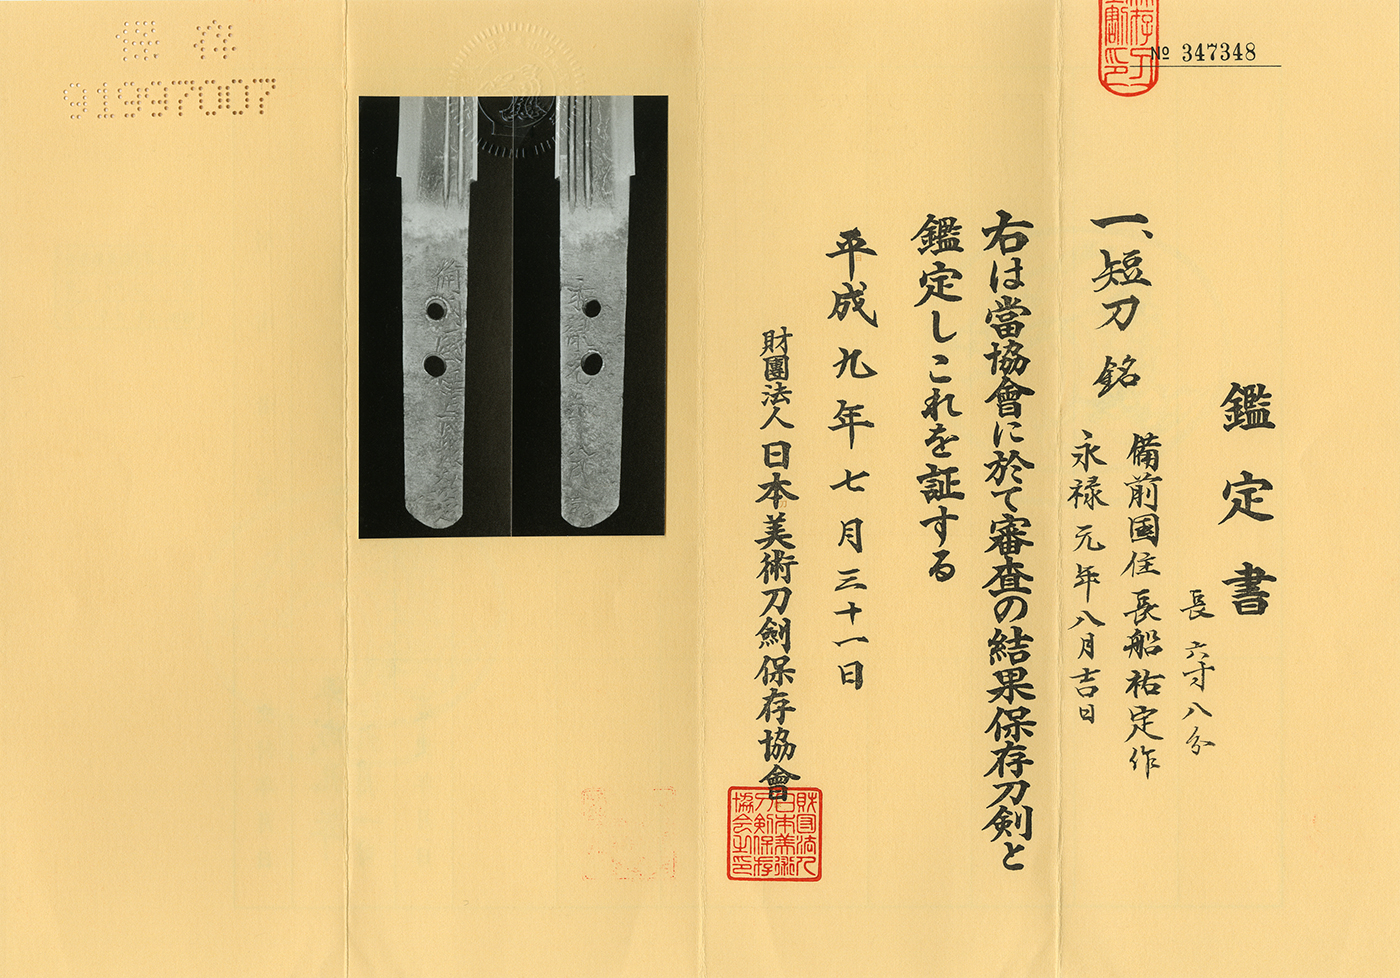 No 347348
鑑定書
一、短刀 銘
長 六寸八分
備前国住長船祐定作
永禄元年八月吉日
右は當協會に於て審査の結果保存刀剣と
鑑定しこれを証する
平成九年七月三十一日
財團法人日本美術刀剣保存協會
財団法人
日本美術
刀剣保存
協会之印
保存
91997007